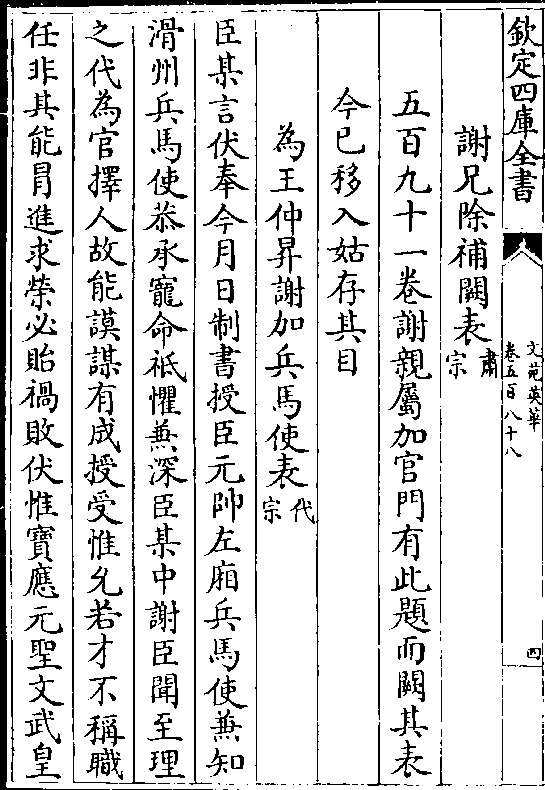 欽定四庫全書
文苑英華
卷五百八十八
四
謝兄除補闕表肅宗
五百九十一卷謝親屬加官門有此題而闕其表
今已移入姑存其目
為王仲昇謝加兵馬使表代宗
臣某言伏奉今月日制書授臣元帥左廂兵馬使兼知
滑州兵馬使恭承寵命祗懼兼深臣某中謝臣聞至理
之代為官擇人故能謨謀有成授受惟允若才不稱職
任非其能冐進求榮必貽禍敗伏惟寶應元聖文武皇